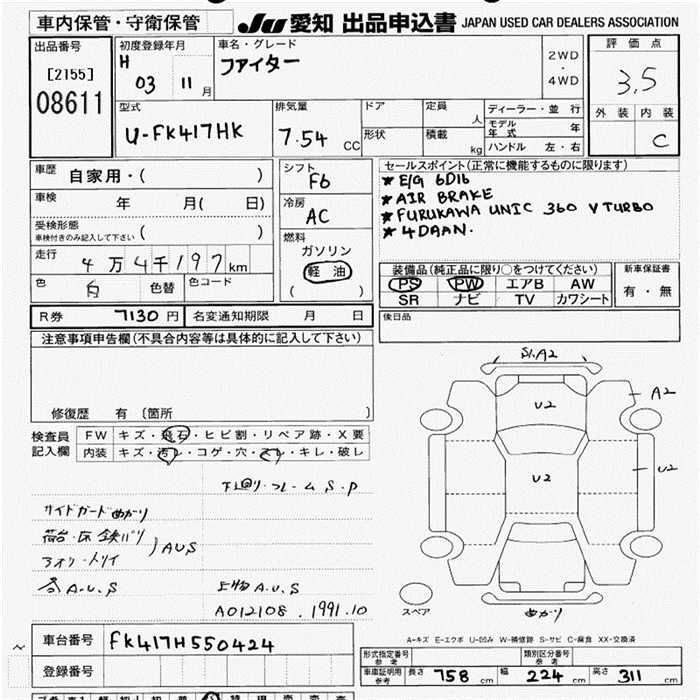 車内保管・守衛保管
JU 愛知 出品申込書 JAPAN USED CAR DEALERS ASSOCIATION
出品番号
[2155]
08611
初度登録年月
H 03 11 月
車名・グレード
ファイター
2WD
・
4WD
評価点
3.5
外装 内装
C
型式
U-FK417HK
排気量
7.54 CC
ドア
形状
定員
人
積載
kg
ディーラー・並行
モデル年式 年
ハンドル 左・右
車歴 自家用・( )
車検 年 月( 日)
受検形態
車検付きのみ記入して下さい ( )
走行 4万4千197km
色 白 色替 色コード
シフト
F6
冷房
AC
燃料
ガソリン
軽油
( )
セールスポイント(正常に機能するものに限ります)
★ E/G 6D16
★ AIR BRAKE
★ FURUKAWA UNIC 360 V TURBO
★ 4DAAN.
装備品(純正品に限り○をつけてください)
PS PW エアB AW
SR ナビ TV カワシート
新車保証書
有・無
R券 7130円 名変通知期限 月 日
後日品
注意事項申告欄(不具合内容等は具体的に記入して下さい)
修復歴 有〔箇所 〕
検査員
記入欄
FW キズ・飛石・ヒビ割・リペア跡・X要
内装 キズ・汚レ・コゲ・穴・スレ・キレ・破レ
下廻り・フレーム S.P
サイドガード曲がり
荷台・床 鉄バリ
アオリ・トリイ
AUS
A.U.S
上物 A.U.S
A012108 . 1991.10
S1.A2
A2
U2
U2
U2
スペア
曲がり
A-キズ E-エクボ U-凹み W-補修跡 S-サビ C-腐食 XX-交換済
車台番号 FK417H550424
登録番号
型式指定番号
参考
類別区分番号
参考
車庫証明用
参考
長さ 758 cm 幅 224 cm 高さ 311 cm